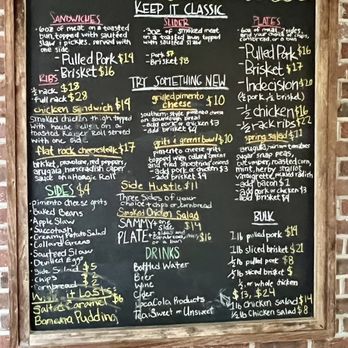 KEEP IT CLASSIC
SANDWICHES
6oz of meat on a toasted
bun topped with sauteed
slaw & pickles, served with
one side
-Pulled Pork $14
-Brisket $16
RIBS
1/2 rack $18
rack $28
chicken sandwich $14
smoked chicken thigh topped
with house
toasted Kaiser Roll served
with one side
Hot rock cheesesteak $17
brisket, provolone, red peppers,
arugula, horseradish caper
sauce on a Hoagie Roll
SIDES $4
-Pimento cheese grits
-Baked Beans
-Apple Slaw
-Succotash
-Creamy Potato Salad
-Collard Greens
-Sauteed Slaw
-Deviled Eggs
-Side Salad $5
-Chips $2
-Cornbread $2
While it Lasts:
Salted Caramel $6
Banana Pudding
SLIDER
3oz smoked meat on
a toasted bun topped
with sauteed slaw
-Pork $7
-Brisket $8
TRY SOMETHING NEW
grilled pimento $10
cheese
southern style pimento cheese
on sourdough bread
-add pork or chicken $3
-add brisket $4
grits & greens bowl $10
pimento cheese grits
topped with collard greens
and fried
-add pork or chicken $3
-add brisket $4
Side Hustle $11
Three Sides of your
choice + chips or cornbread
Smoked Chicken Salad
SAMMY + one side $14
PLATE + 2 sides $16
DRINKS
Bottled Water
Beer
Wine
Cider
Coca Cola Products
Tea: Sweet or Unsweet
PLATES
6oz of meat, 2 sides of
your choice
cornbread, or a bun
-Pulled Pork $16
-Brisket $17
-Indecision $20
(1/2 pork, 1/2 brisket)
-1/2 chicken $16
-1/2 rack ribs $22
spring salad $11
arugula,
sugar snap peas,
cucumber, roasted corn,
mint, herby
vinaigrette, pickled radish
-add bacon $1
-add pork or chicken $3
-add brisket $4
BULK
1 lb pulled pork $14
1 lb sliced brisket $21
1/2 lb pulled pork $8
1/2 lb sliced brisket $
1/2 or whole chicken
$13, $24
1 lb chicken salad $14
1/2 lb Chicken salad $8